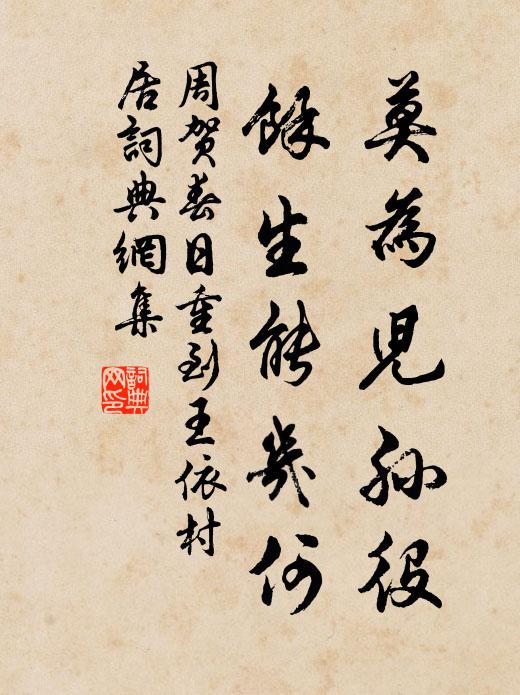 莫為兒孫役
餘生能幾何
周賀春日重到王依村
居詞典網集
詞典
网印